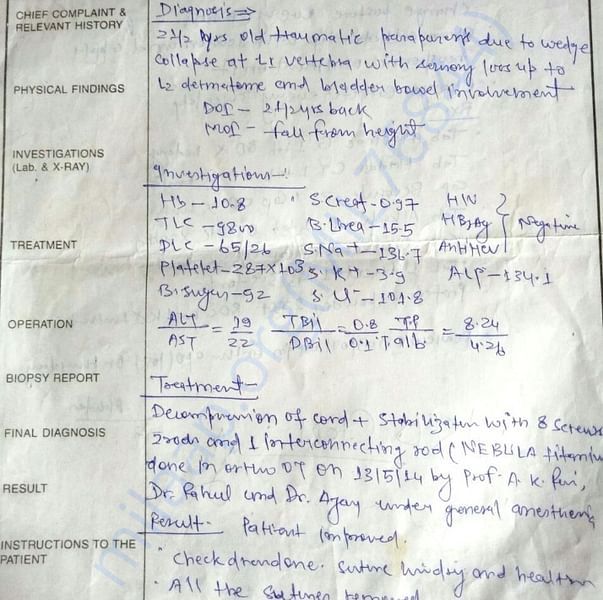 CHIEF COMPLAINT &
RELEVANT HISTORY
PHYSICAL FINDINGS
INVESTIGATIONS
(Lab. & X-RAY)
TREATMENT
OPERATION
BIOPSY REPORT
FINAL DIAGNOSIS
RESULT
INSTRUCTIONS TO THE
PATIENT
Diagnosis ⇒
2 1/2 yrs old traumatic paraparesis due to wedge
collapse at L1 vertebra with sensory loss up to
L2 dermatome and bladder bowel involvement
DOI - 2 1/2 yrs back
MOI - fall from height
Investigations -
Hb - 10.8 S.Creat - 0.97 HIV
TLC - 9800 B.Urea - 15.5 HBsAg Negative
DLC - 65/26 S.Na+ - 136.7 Anti HCV
Platelet - 287×10³ S.K+ - 3.9 ALP - 134.1
B.sugar - 92 S. Cl- - 101.8
ALT/AST = 19/22 TBil/DBil = 0.8/0.1 T.P/T.alb = 8.24/4.26
Treatment -
Decompression of cord + Stabilization with 8 screws
2 rods and 1 interconnecting rod (NEBULA titanium
done in ortho OT on 13/5/14 by Prof. A. K.
Dr. Rahul and Dr. Ajay under general anesthesia
Result - Patient improved.
Check dressing done. suture and
All the sutures removed